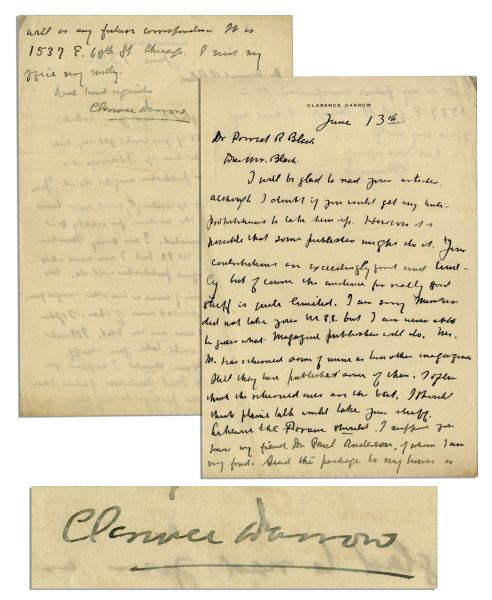 CLARENCE DARROW
June 13th.
Dr Forrest R Black
Dear Mr. Black.
I will be glad to read your articles
although I doubt if you could get any anti-
prohibitionists to take them up. However it is
possible that some publisher might do it. Your
contributions are exceedingly good and time-
ly but of course the audience for really good
stuff is quite limited. I am sorry Mencken
did not take your M.S.S. but I am never able
to guess what Magazine publishers will do. Mr.
M. has returned some of mine as have other magazines
Still they have published some of them. I often
think the returned ones are the best. I should
think plain talk would take your stuff.
the Forum should. I suppose you
know my friend Dr Paul Anderson, of whom I am
very fond. Send the package to my house as
will as any future correspondence It is
1537 E. 60th St Chicago. I visit my
office very rarely.
With kind regards
Clarence Darrow
Clarence Darrow